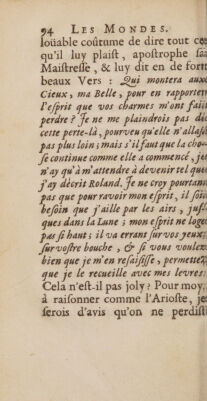 94 LES MONDES.
loüable coûtume de dire tout ce
qu'il luy plaist, apostrophe sa
Maistresse, & luy dit en de fort
beaux Vers : Qui montera aux
Cieux, ma Belle, pour en rapporter
l'esprit que vos charmes m'ont fait
perdre ? Je ne me plaindrois pas de
cette perte-là, pourveu qu'elle n'allast
pas plus loin ; mais s'il faut que la cho-
se continue comme elle a commencé, je
n'ay qu'à m'attendre à devenir tel que
j'ay décrit Roland. Je ne croy pourtant
pas que pour ravoir mon esprit, il soit
besoin que j'aille par les airs, jusf-
ques dans la Lune ; mon esprit ne loge
pas si haut ; il va errant sur vos yeux,
sur vostre bouche, & si vous voulez
bien que je m'en resaisisse, permettez
que je le recueille avec mes levres.
Cela n'est-il pas joly ? Pour moy,
à raisonner comme l'Arioste, je
serois d'avis qu'on ne perdist